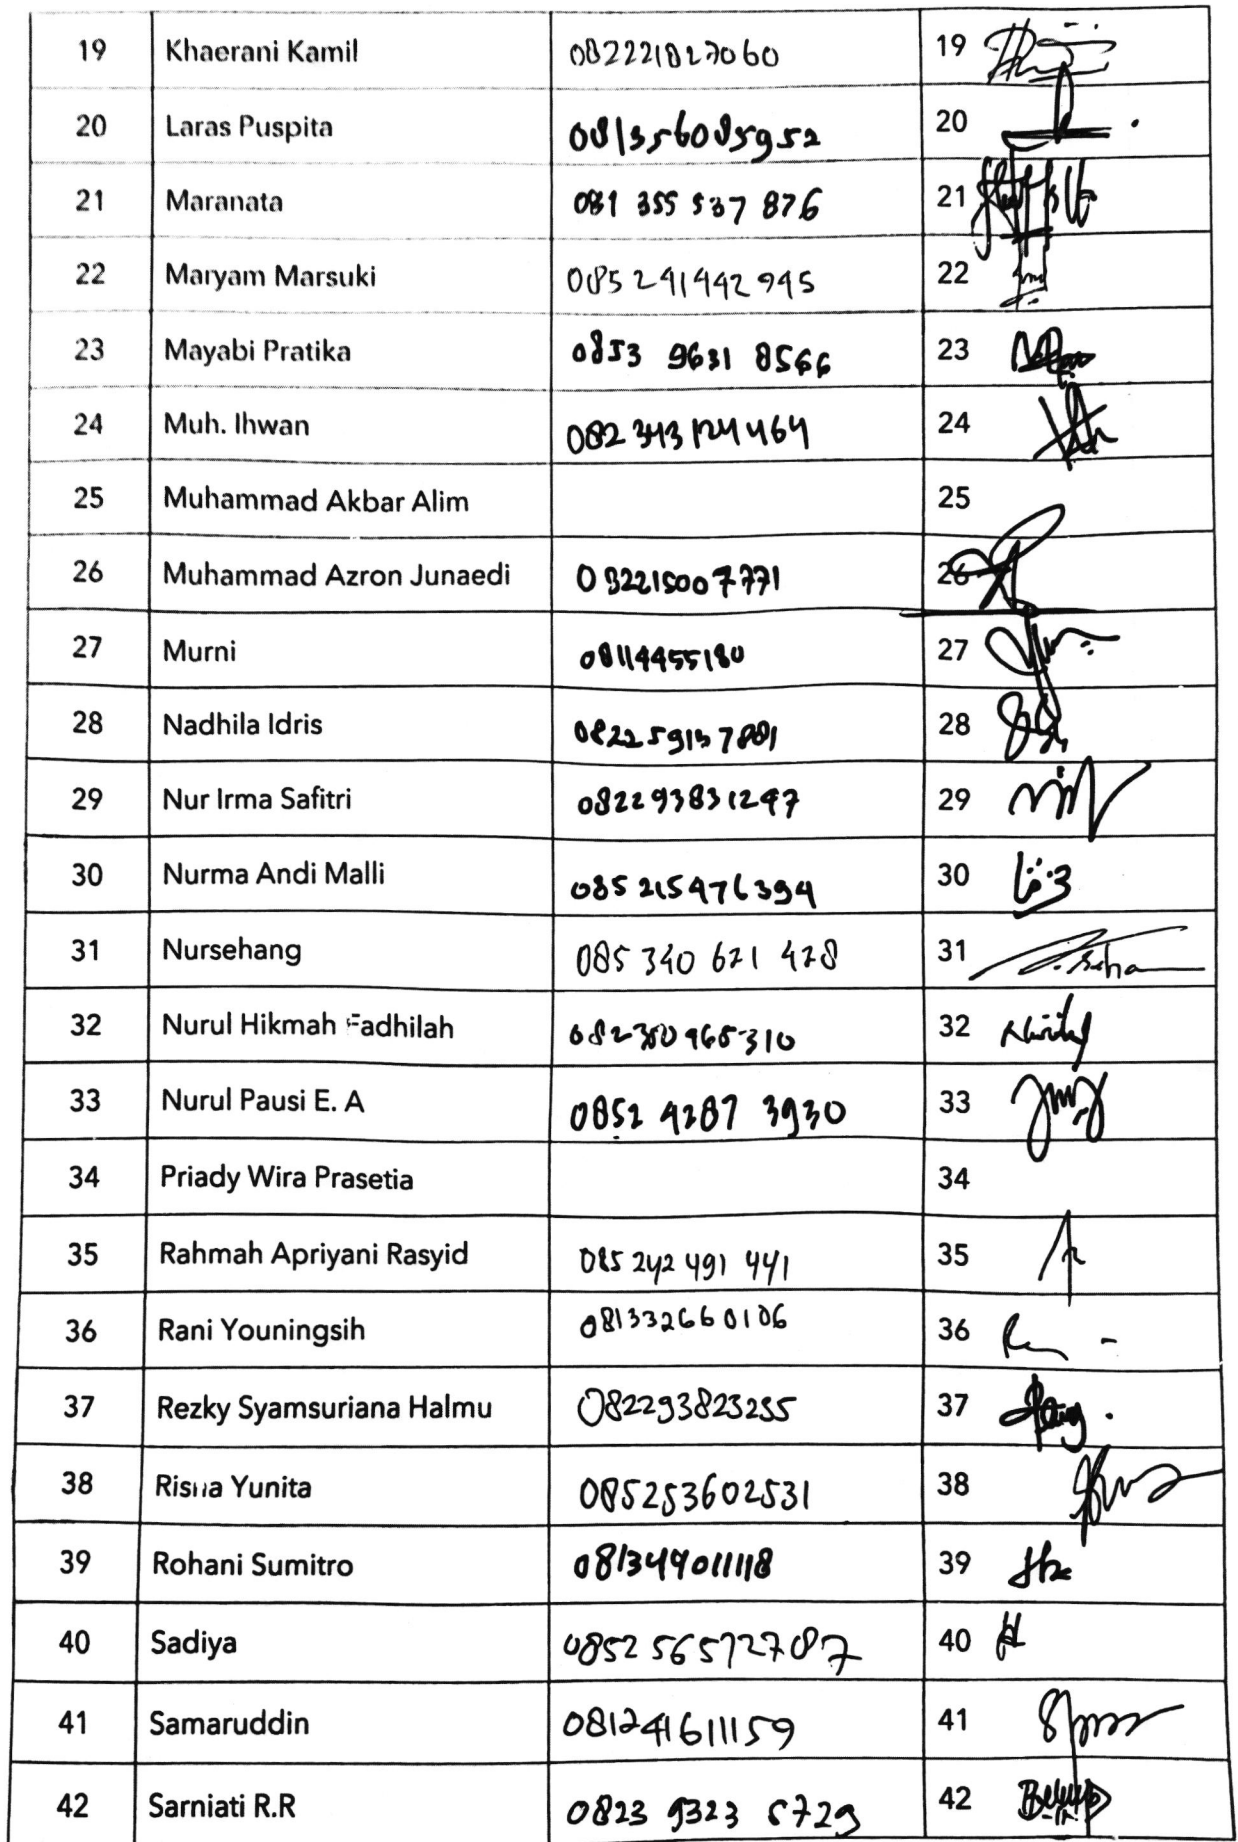 19 Khaerani Kamil 082221827060 19
20 Laras Puspita 081356085952 20
21 Maranata 081 355 537 876 21
22 Maryam Marsuki 085 241442 945 22
23 Mayabi Pratika 0853 9631 8566 23
24 Muh. Ihwan 082 343 124 464 24
25 Muhammad Akbar Alim 25
26 Muhammad Azron Junaedi 082215007771 26
27 Murni 08114455180 27
28 Nadhila Idris 28
29 Nur Irma Safitri 082293831247 29
30 Nurma Andi Malli 085 215476394 30
31 Nursehang 085 340 621 428 31
32 Nurul Hikmah Fadhilah 32
33 Nurul Pausi E. A 0852 4287 3930 33
34 Priady Wira Prasetia 34
35 Rahmah Apriyani Rasyid 085 242 491 441 35
36 Rani Youningsih 081332660106 36
37 Rezky Syamsuriana Halmu 082293823255 37
38 Risna Yunita 085253602531 38
39 Rohani Sumitro 081344011118 39
40 Sadiya 0852 565727087 40
41 Samaruddin 081241611159 41
42 Sarniati R.R 0823 9323 5729 42